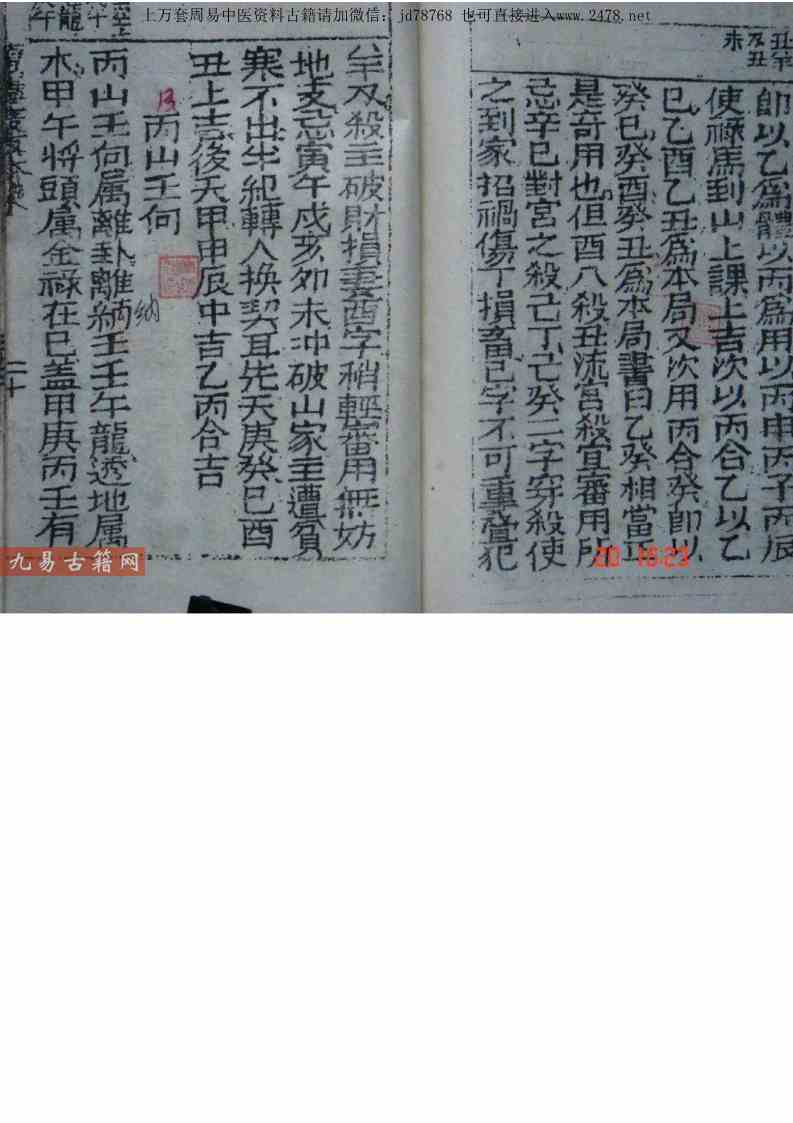 上万套周易中医资料古籍请加微信：jd78768 也可直接进入www.2478.net
即以乙爲體以丙爲用以丙申丙子丙辰
使祿馬到山上課上吉次以丙合乙以乙
巳乙酉乙丑爲本局又次用丙合癸即以
癸巳癸酉癸丑爲本局書曰乙癸相當正
是奇用也但酉八殺丑流官殺宜審用所
忌辛巳對宮之殺己丁己癸二字穿殺使
之到家招禍傷丁損畜己字不可重疊犯
羊刃殺主破財損妻酉字稍輕審用無妨
地支忌寅午戌亥卯未冲破山家主遭貧
寒不出半紀轉人换契耳先天庚癸巳酉
丑上吉後天甲申辰中吉乙丙合吉
丙山壬向
丙山壬向属離卦離納壬壬午龍透地属
納
木甲午將頭属金祿在巳盖甲庚丙壬有
二十
九易古籍网
20 16:23